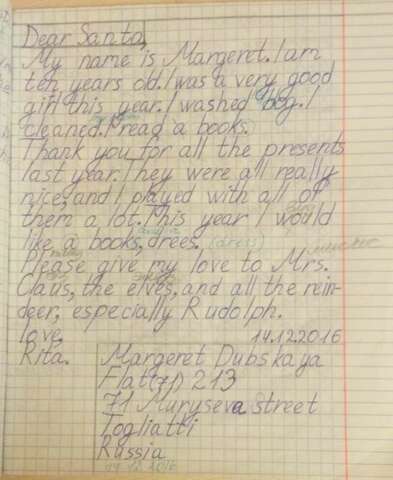 Dear Santa,
My name is Margeret. I am
ten years old. I was a very good
girl this year. I washed dog. I
cleaned. I read a books.
Thank you for all the presents
last year. They were all really
nice, and I played with all of
them a lot. This year I would
like a books, drees. (dress)
Please give my love to Mrs.
Claus, the elves, and all the rein-
deer, especially Rudolph.
love,
14.12.2016
Rita.
Margeret Dubskaya
Flat(71) 213
71 Muryseva street
Togliatti
Russia
14.12.2016